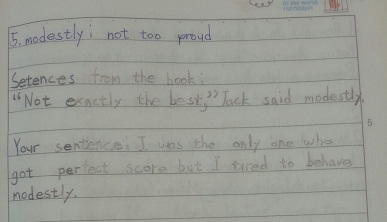 5. modestly: not too proud
Setences from the book:
"Not exactly the best," Jack said modestly.
Your sentence: I was the only one who
got perfect score but I tired to behave
modestly.
5